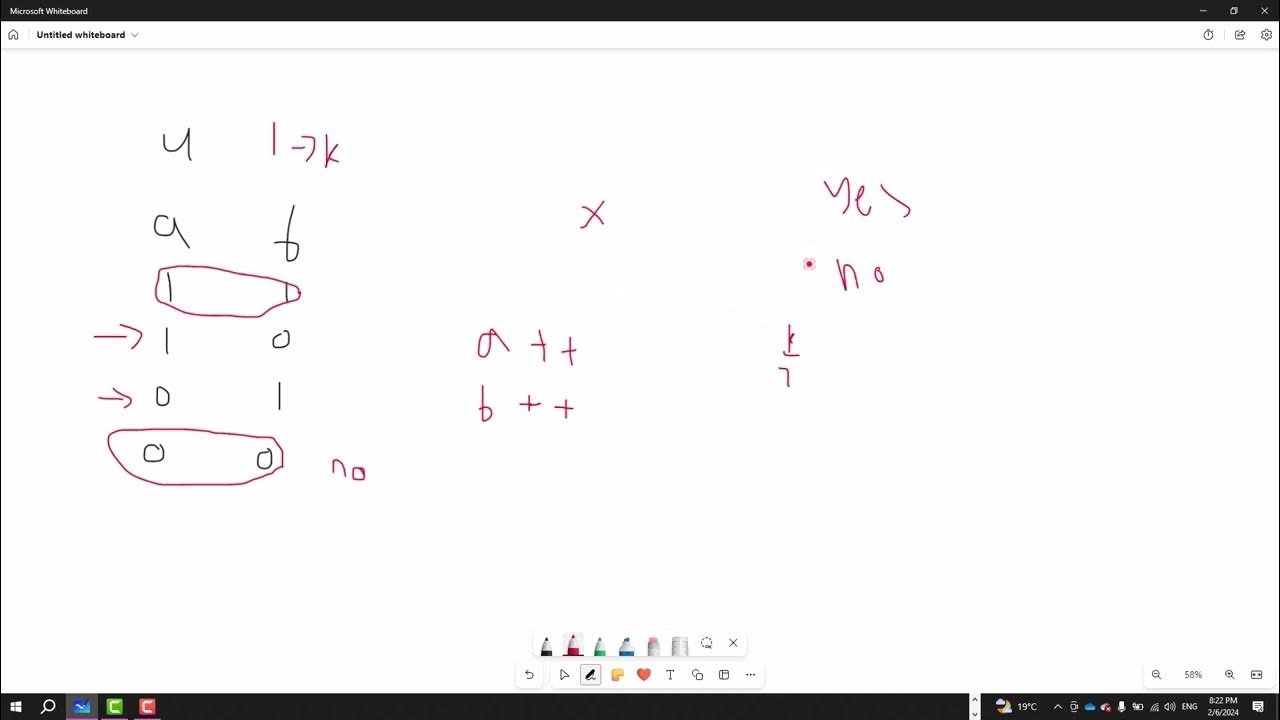 Microsoft Whiteboard
Untitled whiteboard
4 1 → k
a b
1 1
→ 1 0
→ 0 1
0 0 no
x
a ++
b ++
Yes
no
k
2
T
58%
19°C
ENG
8:22 PM
2/6/2024